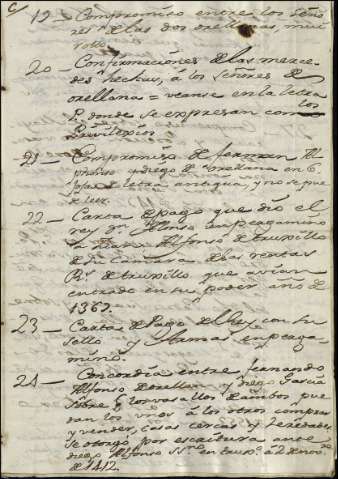 19 — Compromiso entre los Seño
res de las dos orellanas, mui
20 — Confirmaciones de las merce
des hechas, a los Señores de
orellana = veanse en la letra
P, donde se expresan como los
Privilexios
21 — Compromiso de fernan Al
phonso y diego de orellana en 6
fojas de letra antigua, y no se pue
de leer.
22 — Carta de pago que dio el
rey Dn Alonso en pergamino
Alfonso de truxillo
de su Camara de las rentas
Rs de truxillo que avian
entrado en su poder año de
1367.
23 — Cartas de Pago del Rey con su
Sello y Armas en perga
mino.
24 — Concordia entre fernando
Alfonso de orellana y diego Garcia
sobre que los vasallos de ambos, pue
dan los unos a los otros comprar
y vender, casas cercas y heredades
se otorgó por escritura ante
diego Alfonso SSno en
de 1412.